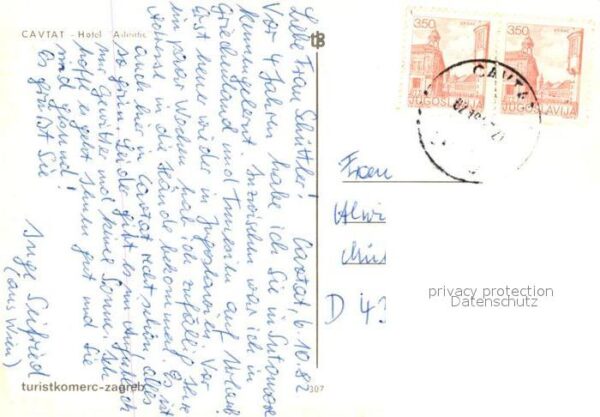 CAVTAT - Hotel Adriatic
Liebe Frau Schüttler! Cavtat, 6.10.82
Vor 4 Jahren habe ich Sie in Sutomore
kennengelernt. Inzwischen war ich in
Griechenland und Tunesien auf Urlaub.
Erst heuer wieder in Jugoslawien. Vor
ein paar Wochen hab ich zufällig Ihre
Adresse in die Hände bekommen. Es ist
auch hier in Cavtat recht schön, alles
so grün. Leider gibt es im Augenblick
nur Gewitter und keine Sonne. Ich
hoffe es geht Ihnen gut und Sie
sind gesund!
Es grüßt Sie
Inge Seifried
(aus Wien)
turistkomerc-zagreb
307
3,50
JUGOSLAVIJA
3,50
JUGOSLAVIJA
CAVTAT
Frau
D 43
privacy protection
Datenschutz